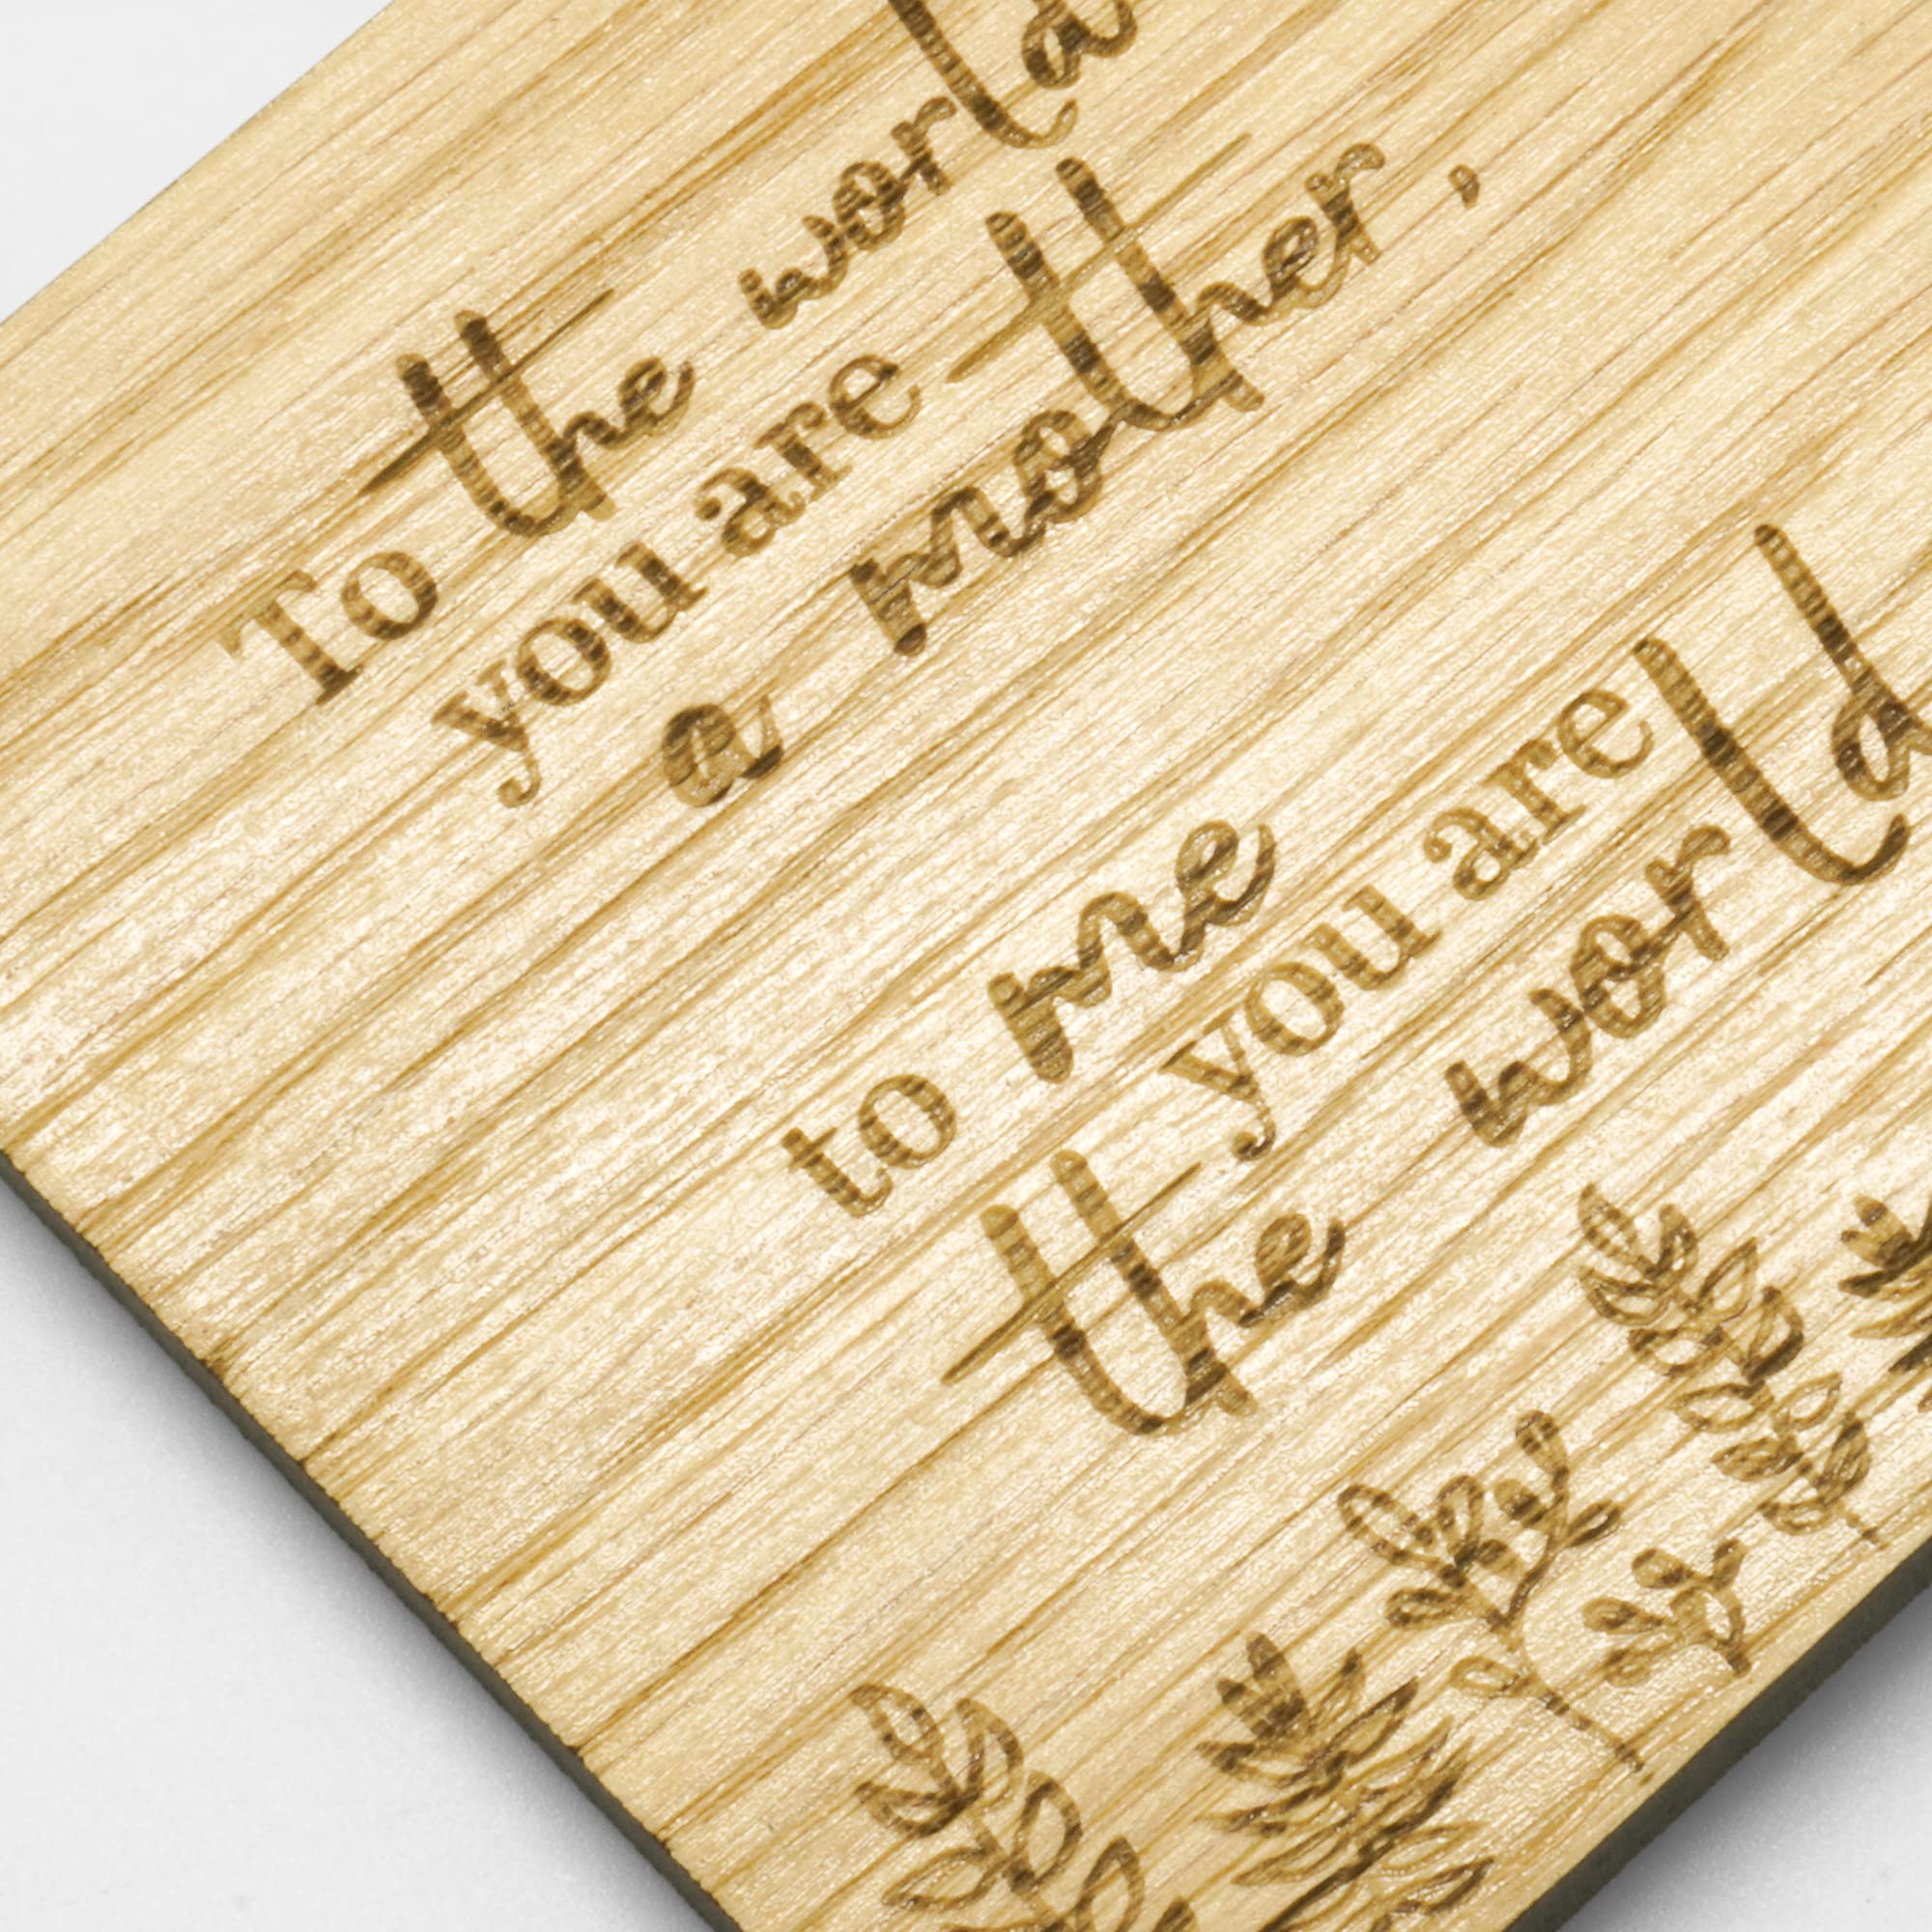 To the world
you are
a mother,
to me
you are
the world